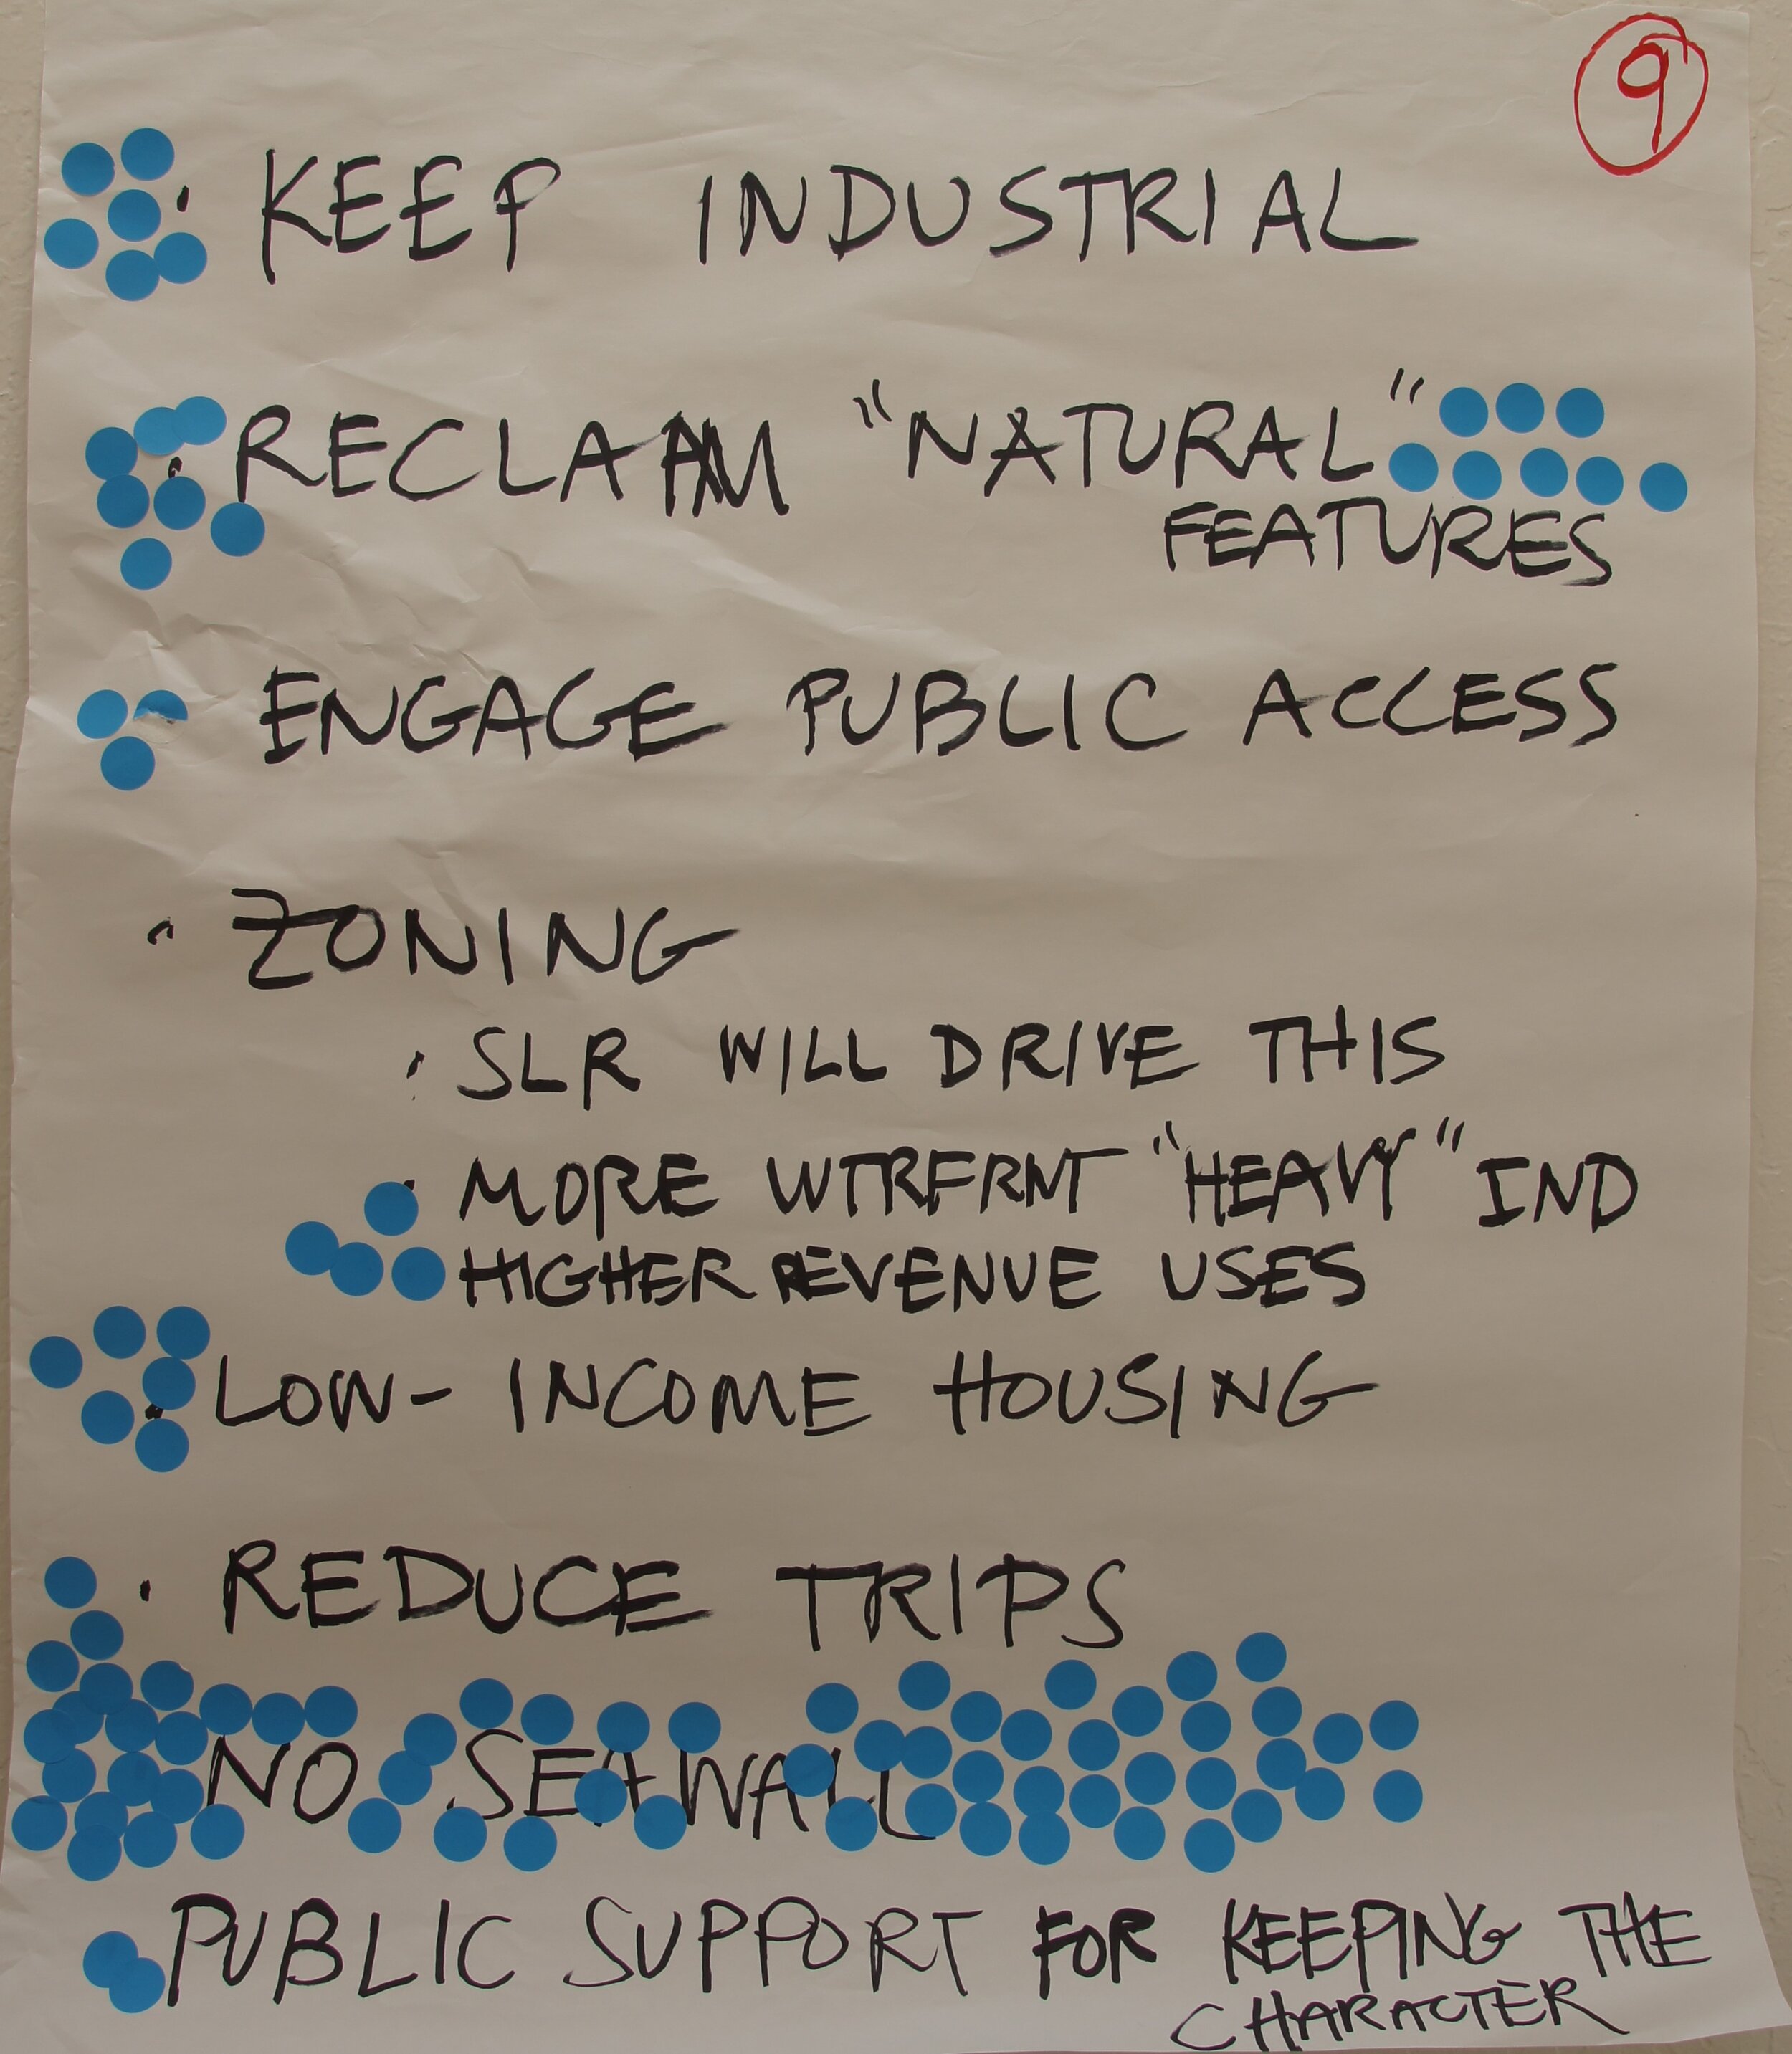 9
• KEEP INDUSTRIAL
• RECLAIM "NATURAL"
FEATURES
ENGAGE PUBLIC ACCESS
• ZONING
• SLR WILL DRIVE THIS
• MORE WTRFRNT "HEAVY" IND
HIGHER REVENUE USES
• LOW-INCOME HOUSING
• REDUCE TRIPS
NO SEAWALL
PUBLIC SUPPORT FOR KEEPING THE
CHARACTER